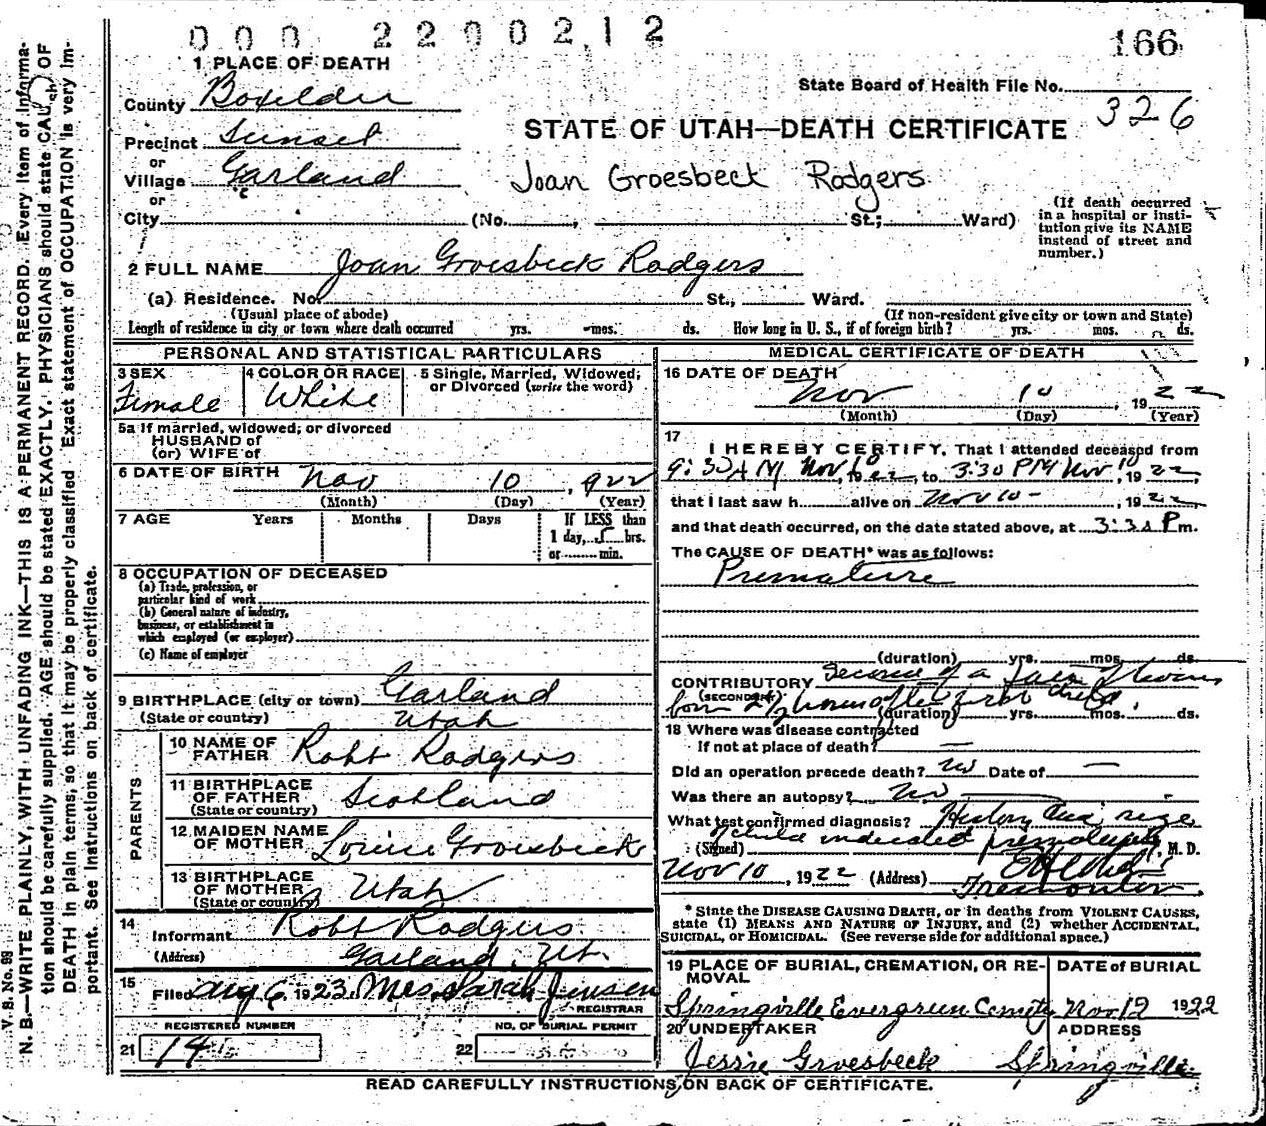 000 2200212
166
1 PLACE OF DEATH
State Board of Health File No.
326
County Boxelder
STATE OF UTAH—DEATH CERTIFICATE
Precinct Sunset
or
Village Garland
Joan Groesbeck Rodgers
or
City (No. , St.; Ward)
(If death occurred
in a hospital or insti-
tution give its NAME
instead of street and
number.)
2 FULL NAME Joan Groesbeck Rodgers
(a) Residence. No. St., Ward.
(Usual place of abode)
(If non-resident give city or town and State)
Length of residence in city or town where death occurred yrs. mos. ds. How long in U. S., if of foreign birth? yrs. mos. ds.
PERSONAL AND STATISTICAL PARTICULARS
3 SEX
Female
4 COLOR OR RACE
White
5 Single, Married, Widowed;
or Divorced (write the word)
5a If married, widowed; or divorced
HUSBAND of
(or) WIFE of
6 DATE OF BIRTH Nov 10, 922
(Month) (Day) (Year)
7 AGE Years Months Days
If LESS than
1 day, 5 hrs.
or min.
8 OCCUPATION OF DECEASED
(a) Trade, profession, or
particular kind of work
(b) General nature of industry,
business, or establishment in
which employed (or employer)
(c) Name of employer
9 BIRTHPLACE (city or town) Garland
(State or country) Utah
PARENTS
10 NAME OF
FATHER Robt Rodgers
11 BIRTHPLACE
OF FATHER Scotland
(State or country)
12 MAIDEN NAME
OF MOTHER Louise Groesbeck
13 BIRTHPLACE
OF MOTHER Utah
(State or country)
14
Informant Robt Rodgers
(Address) Garland, Ut.
15
Filed Aug 6, 1923 Mrs. Sarah Jensen
REGISTRAR
REGISTERED NUMBER
21 14
NO. OF BURIAL PERMIT
22
MEDICAL CERTIFICATE OF DEATH
16 DATE OF DEATH
Nov 10, 1922
(Month) (Day) (Year)
17
I HEREBY CERTIFY, That I attended deceased from
9:30 AM Nov 10, 1922, to 3:30 PM Nov 10, 1922,
that I last saw h alive on Nov 10 -, 1922
and that death occurred, on the date stated above, at 3:30 P m.
The CAUSE OF DEATH* was as follows:
Premature
(duration) yrs. mos. ds.
CONTRIBUTORY Second of a
(SECONDARY) born 2 1/2 hours after first child.
(duration) yrs. mos. ds.
18 Where was disease contracted
If not at place of death? —
Did an operation precede death? no Date of —
Was there an autopsy? No
What test confirmed diagnosis? History and size
of child indicated
(Signed) M. D.
Nov 10, 1922 (Address) Tremonton
* State the DISEASE CAUSING DEATH, or in deaths from VIOLENT CAUSES,
state (1) MEANS AND NATURE OF INJURY, and (2) whether ACCIDENTAL,
SUICIDAL, or HOMICIDAL. (See reverse side for additional space.)
19 PLACE OF BURIAL, CREMATION, OR RE-
MOVAL
Springville Evergreen Cemety
DATE of BURIAL
Nov 12 1922
20 UNDERTAKER
Jessie Groesbeck
ADDRESS
Springville
READ CAREFULLY INSTRUCTIONS ON BACK OF CERTIFICATE.
V. S. No. 88
N. B.—WRITE PLAINLY, WITH UNFADING INK—THIS IS A PERMANENT RECORD. Every item of informa-
tion should be carefully supplied. AGE should be stated EXACTLY. PHYSICIANS should state CAUSE OF
DEATH in plain terms, so that it may be properly classified. Exact statement of OCCUPATION is very im-
portant. See instructions on back of certificate.